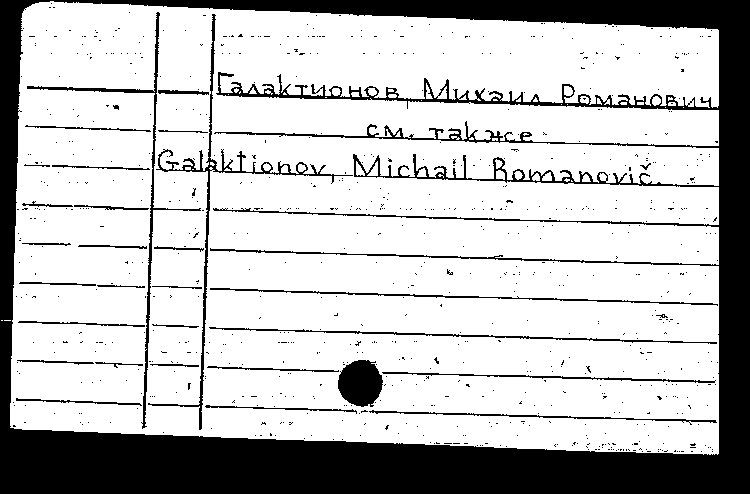 Галактионов, Михаил Романович
см. также
Galaktionov, Michail Romanovič.